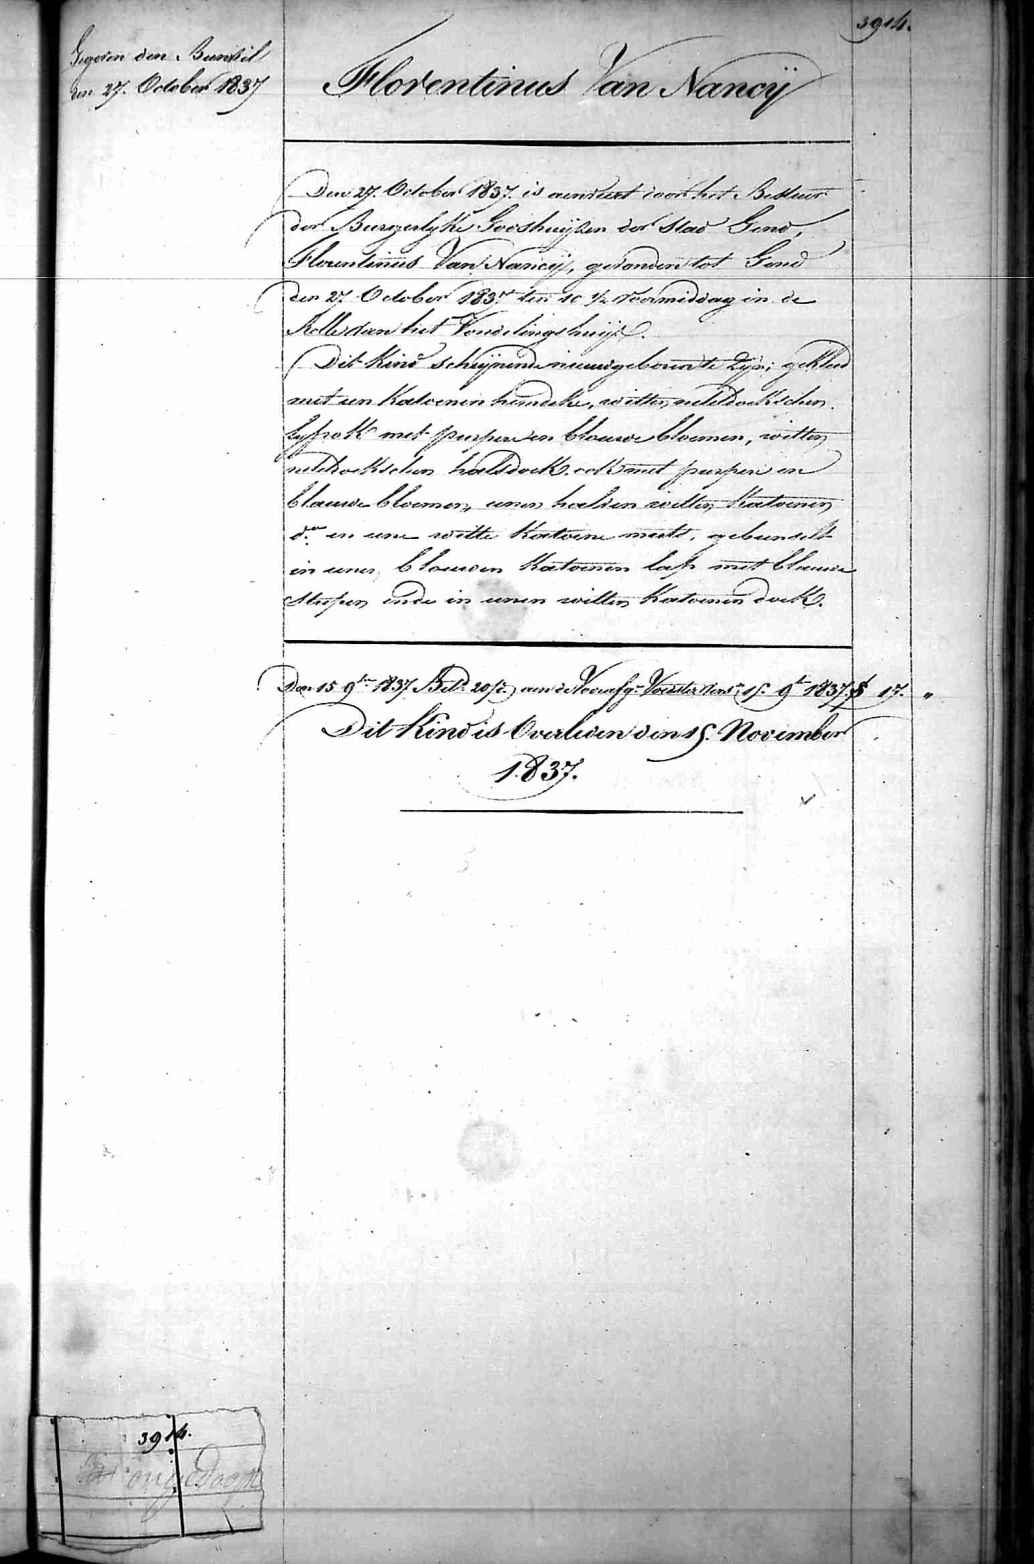 3914.
Gegeven den Bundsel
den 27. October 1837
Florentinus Van Nancÿ
Den 27. October 1837. is aenveert door het Bestuer
der Burgerlyke Godshuyzen der Stad Gend,
Florentinus Van Nancÿ, gevonden tot Gend
den 27 October 1837 ten 10 ½ voormiddag in de
Rolle van het Vondelingshuys.
Dit Kind schynende nieuwgeboren te zyn; gekleed
met een Katoenen hemdeke, witten neteldoekschen
lyfrok met purpere en blauwe bloemen, witten
neteldoekschen halsdoek ook met purpere en
blauwe bloemen, eenen halven witten Katoenen
do. en eene witte Katoene muts, gebunselt
in eenen blauwen Katoenen lap met blauwe
strepen ende in eenen witten Katoenen doek.
Den 15 9br 1837. aen de Voedster 15 9br 1837. 17. "
Dit Kind is Overleden den 15. November
1837.
3914.